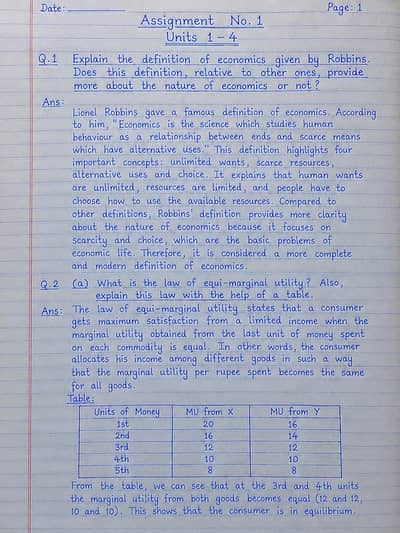 Date: Page: 1
Assignment No. 1
Units 1 - 4
Q.1 Explain the definition of economics given by Robbins.
Does this definition, relative to other ones, provide
more about the nature of economics or not?
Ans:
Lionel Robbins gave a famous definition of economics. According
to him, "Economics is the science which studies human
behaviour as a relationship between ends and scarce means
which have alternative uses." This definition highlights four
important concepts: unlimited wants, scarce resources,
alternative uses and choice. It explains that human wants
are unlimited, resources are limited, and people have to
choose how to use the available resources. Compared to
other definitions, Robbins' definition provides more clarity
about the nature of economics because it focuses on
scarcity and choice, which are the basic problems of
economic life. Therefore, it is considered a more complete
and modern definition of economics.
Q.2 (a) What is the law of equi-marginal utility? Also,
explain this law with the help of a table.
Ans: The law of equi-marginal utility states that a consumer
gets maximum satisfaction from a limited income when the
marginal utility obtained from the last unit of money spent
on each commodity is equal. In other words, the consumer
allocates his income among different goods in such a way
that the marginal utility per rupee spent becomes the same
for all goods.
Table:
Units of Money MU from X MU from Y
1st 20 16
2nd 16 14
3rd 12 12
4th 10 10
5th 8 8
From the table, we can see that at the 3rd and 4th units
the marginal utility from both goods becomes equal (12 and 12,
10 and 10). This shows that the consumer is in equilibrium.